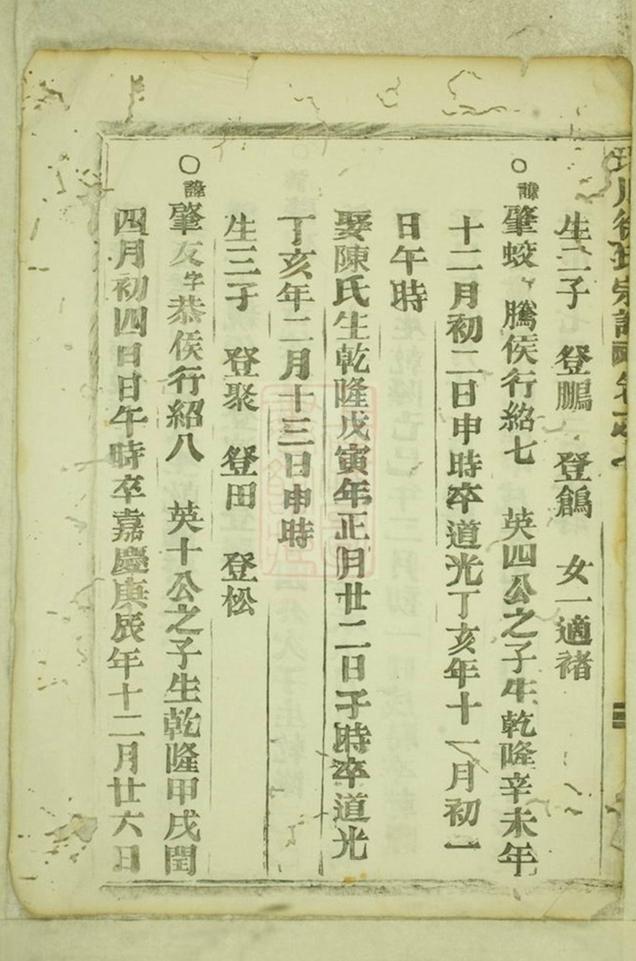 生二子　登鵬　登鶴　女一適褚
○諱肇蛟　騰侯行紹七　英四公之子生乾隆辛未年
十二月初二日申時卒道光丁亥年十一月初一
日午時
娶陳氏生乾隆戊寅年正月廿二日子時卒道光
丁亥年二月十三日申時
生三子　登聚　登田　登松
○諱肇友字恭侯行紹八　英十公之子生乾隆甲戌閏
四月初四日午時卒嘉慶庚辰年十二月廿六日